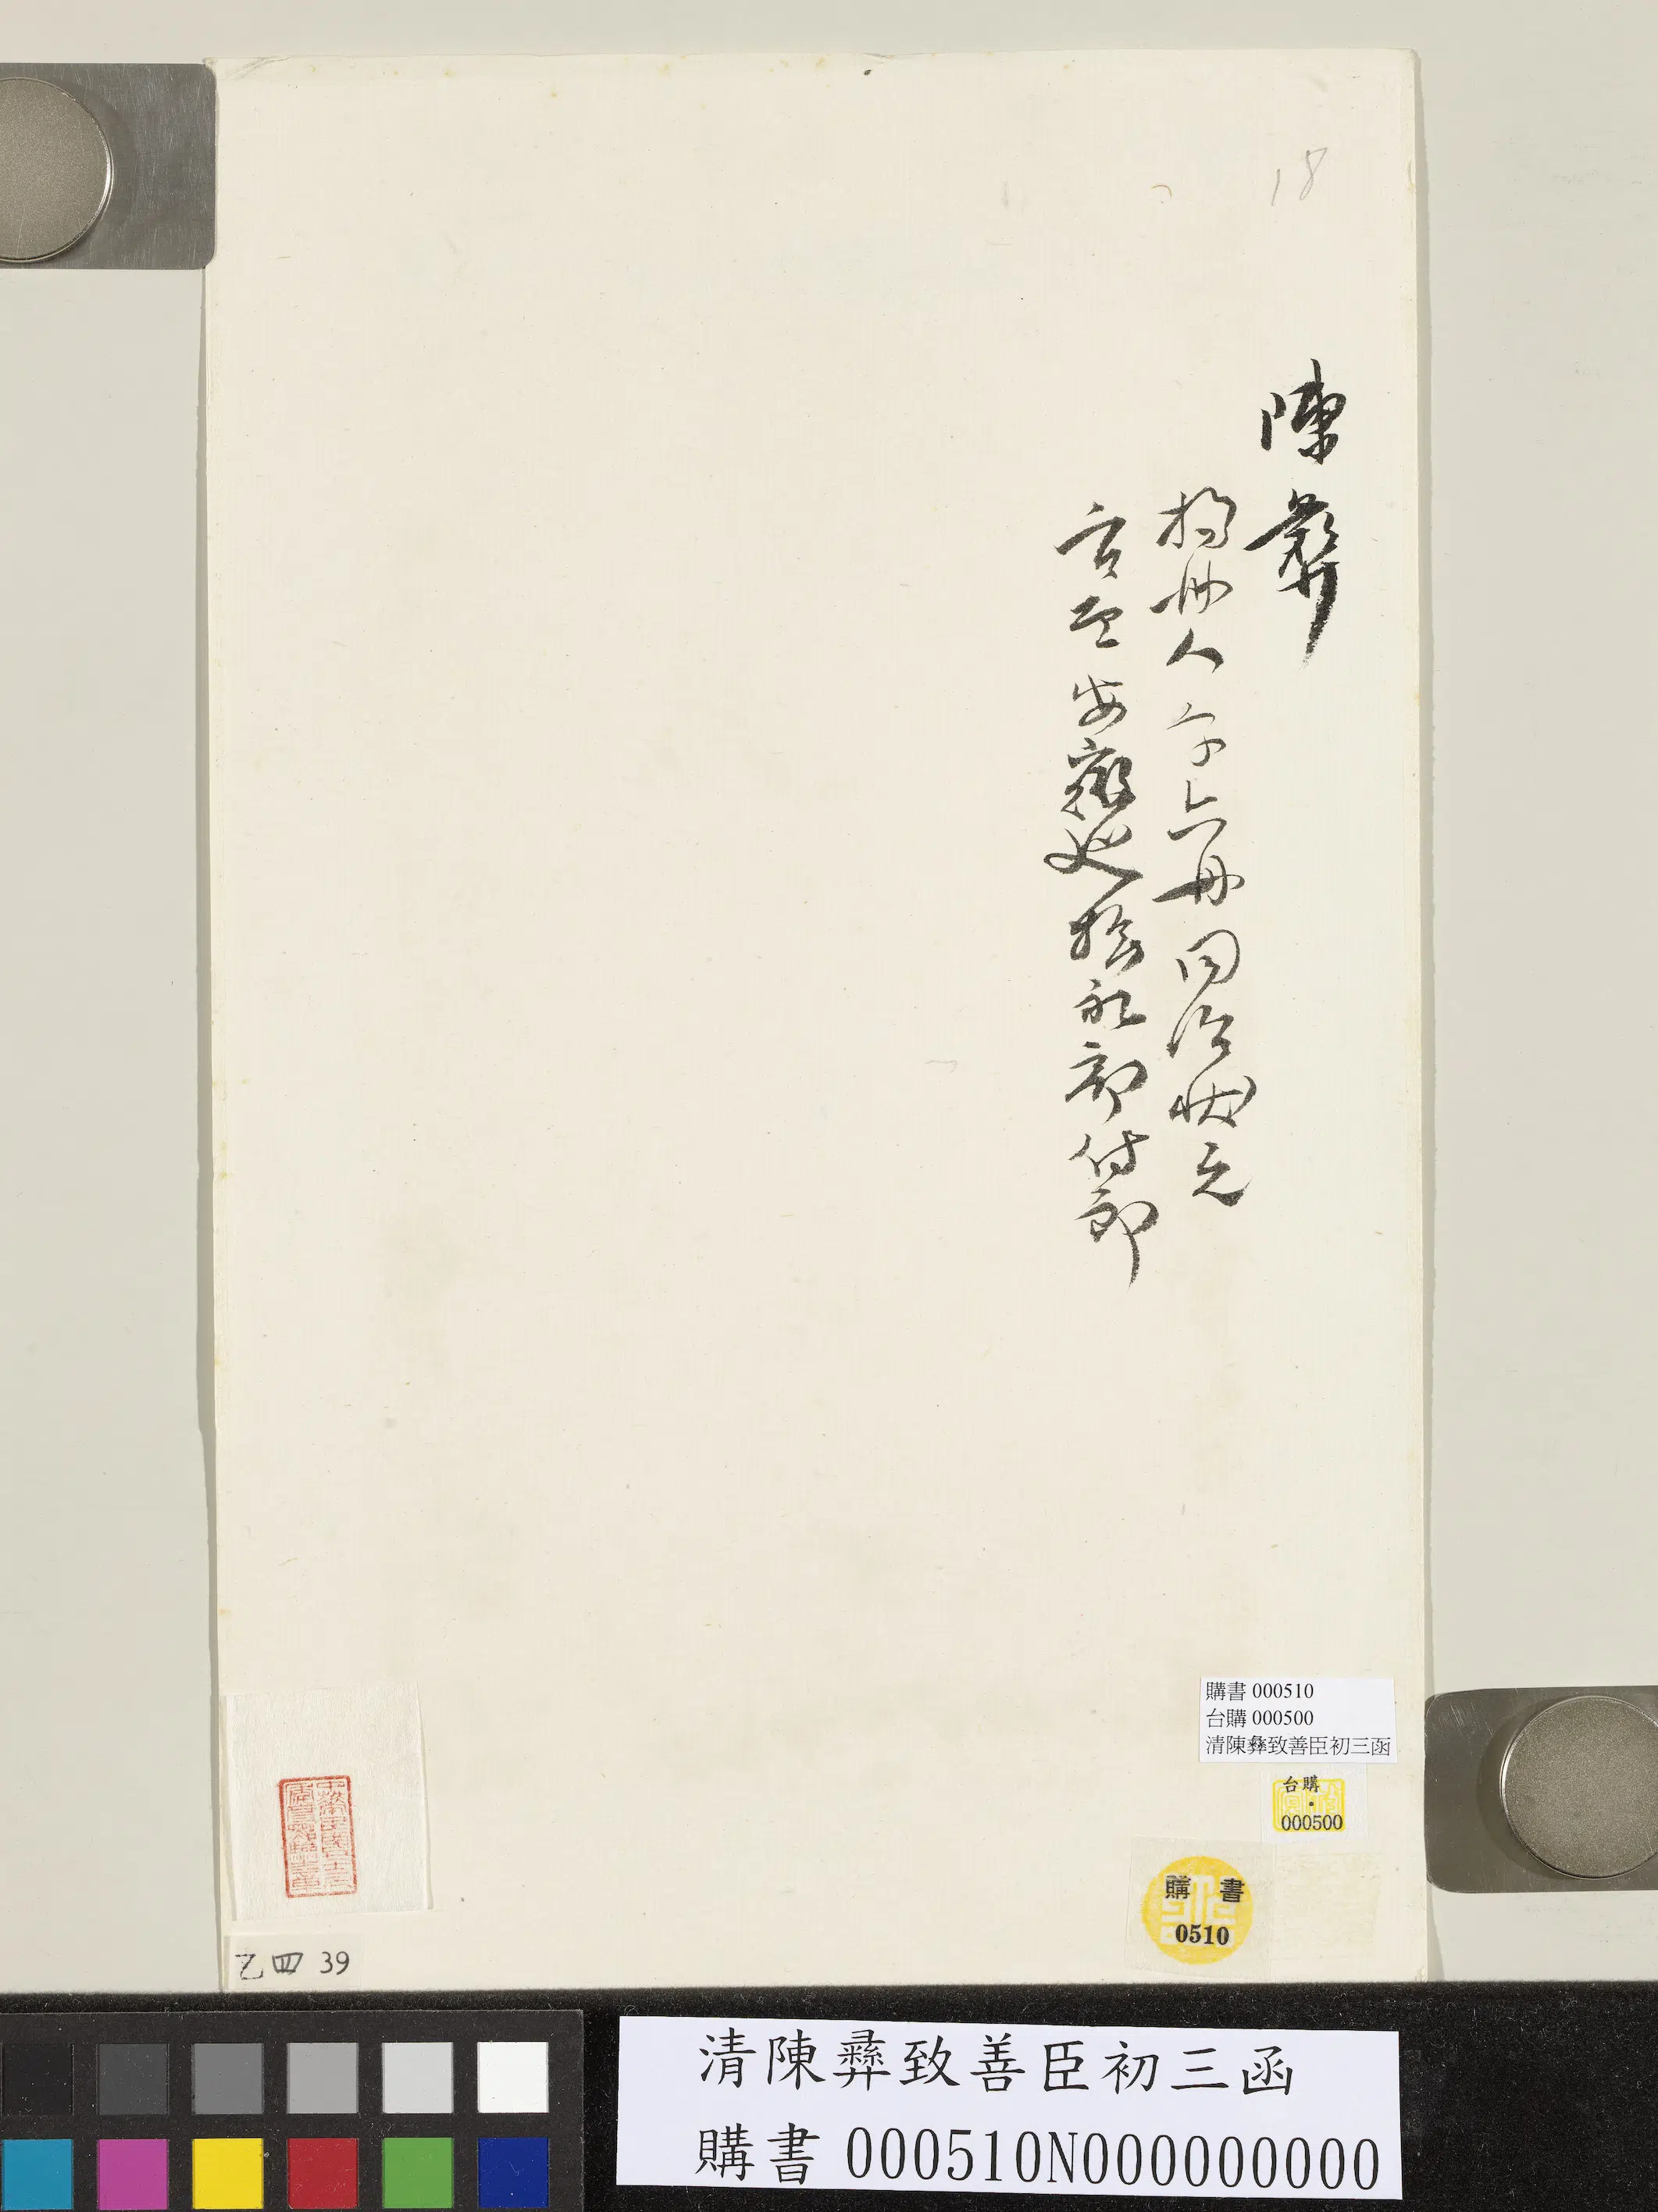 18
陳彝
揚州人 字六舟 同治狀元
官至安徽巡撫礼部侍郎
購書 000510
台購 000500
清陳彝致善臣初三函
台購
000500
購書
0510
乙四 39
清陳彝致善臣初三函
購書 000510N000000000